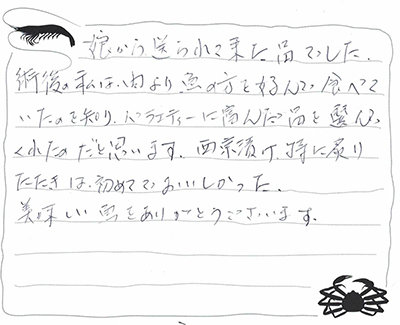 娘から送られて来た品でした。
術後の私は、肉より魚の方を好んで食べて
いたのを知り、バラエティーに富んだ品を選んで
くれたのだと思います。西京漬け、特に炙り
たたきは、初めてでおいしかった。
美味しい魚をありがとうございます。